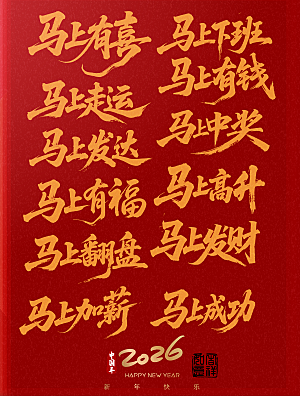 马上有喜
马上走运
马上发达
马上有福
马上翻盘
马上加薪
马上下班
马上有钱
马上中奖
马上高升
马上发财
马上成功
中国年
2026
HAPPY NEW YEAR
新年快乐